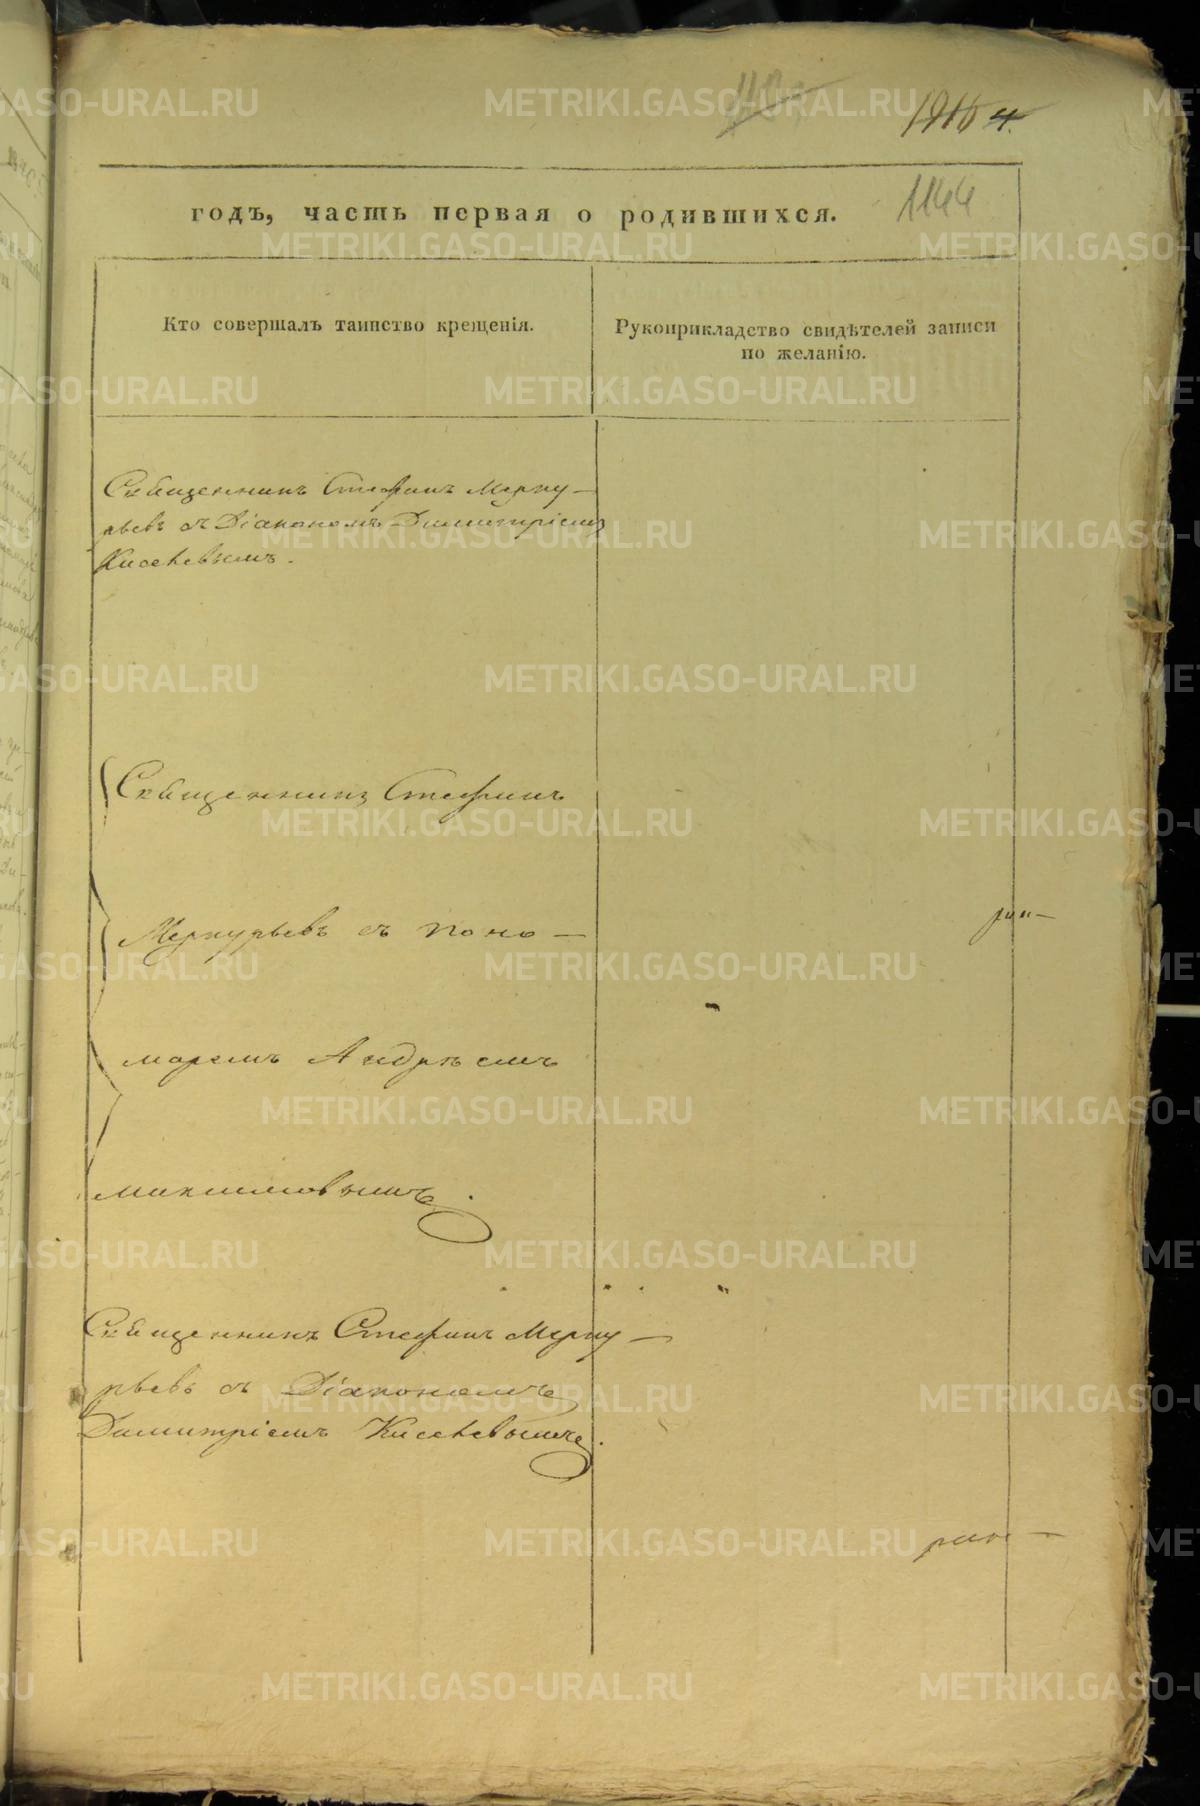 1144
годъ, часть первая о родившихся.
Кто совершалъ таинство крещенія.
Рукоприкладство свидѣтелей записи
по желанію.
Священникъ Стефанъ Мерку–
рьевъ съ Діакономъ Димитріемъ
Киселевымъ.
Священникъ Стефанъ
Меркурьевъ съ поно–
маремъ Андрѣемъ
Максимовымъ.
Священникъ Стефанъ Мерку–
рьевъ съ Діакономъ
Димитріемъ Киселевымъ.
METRIKI.GASO-URAL.RU